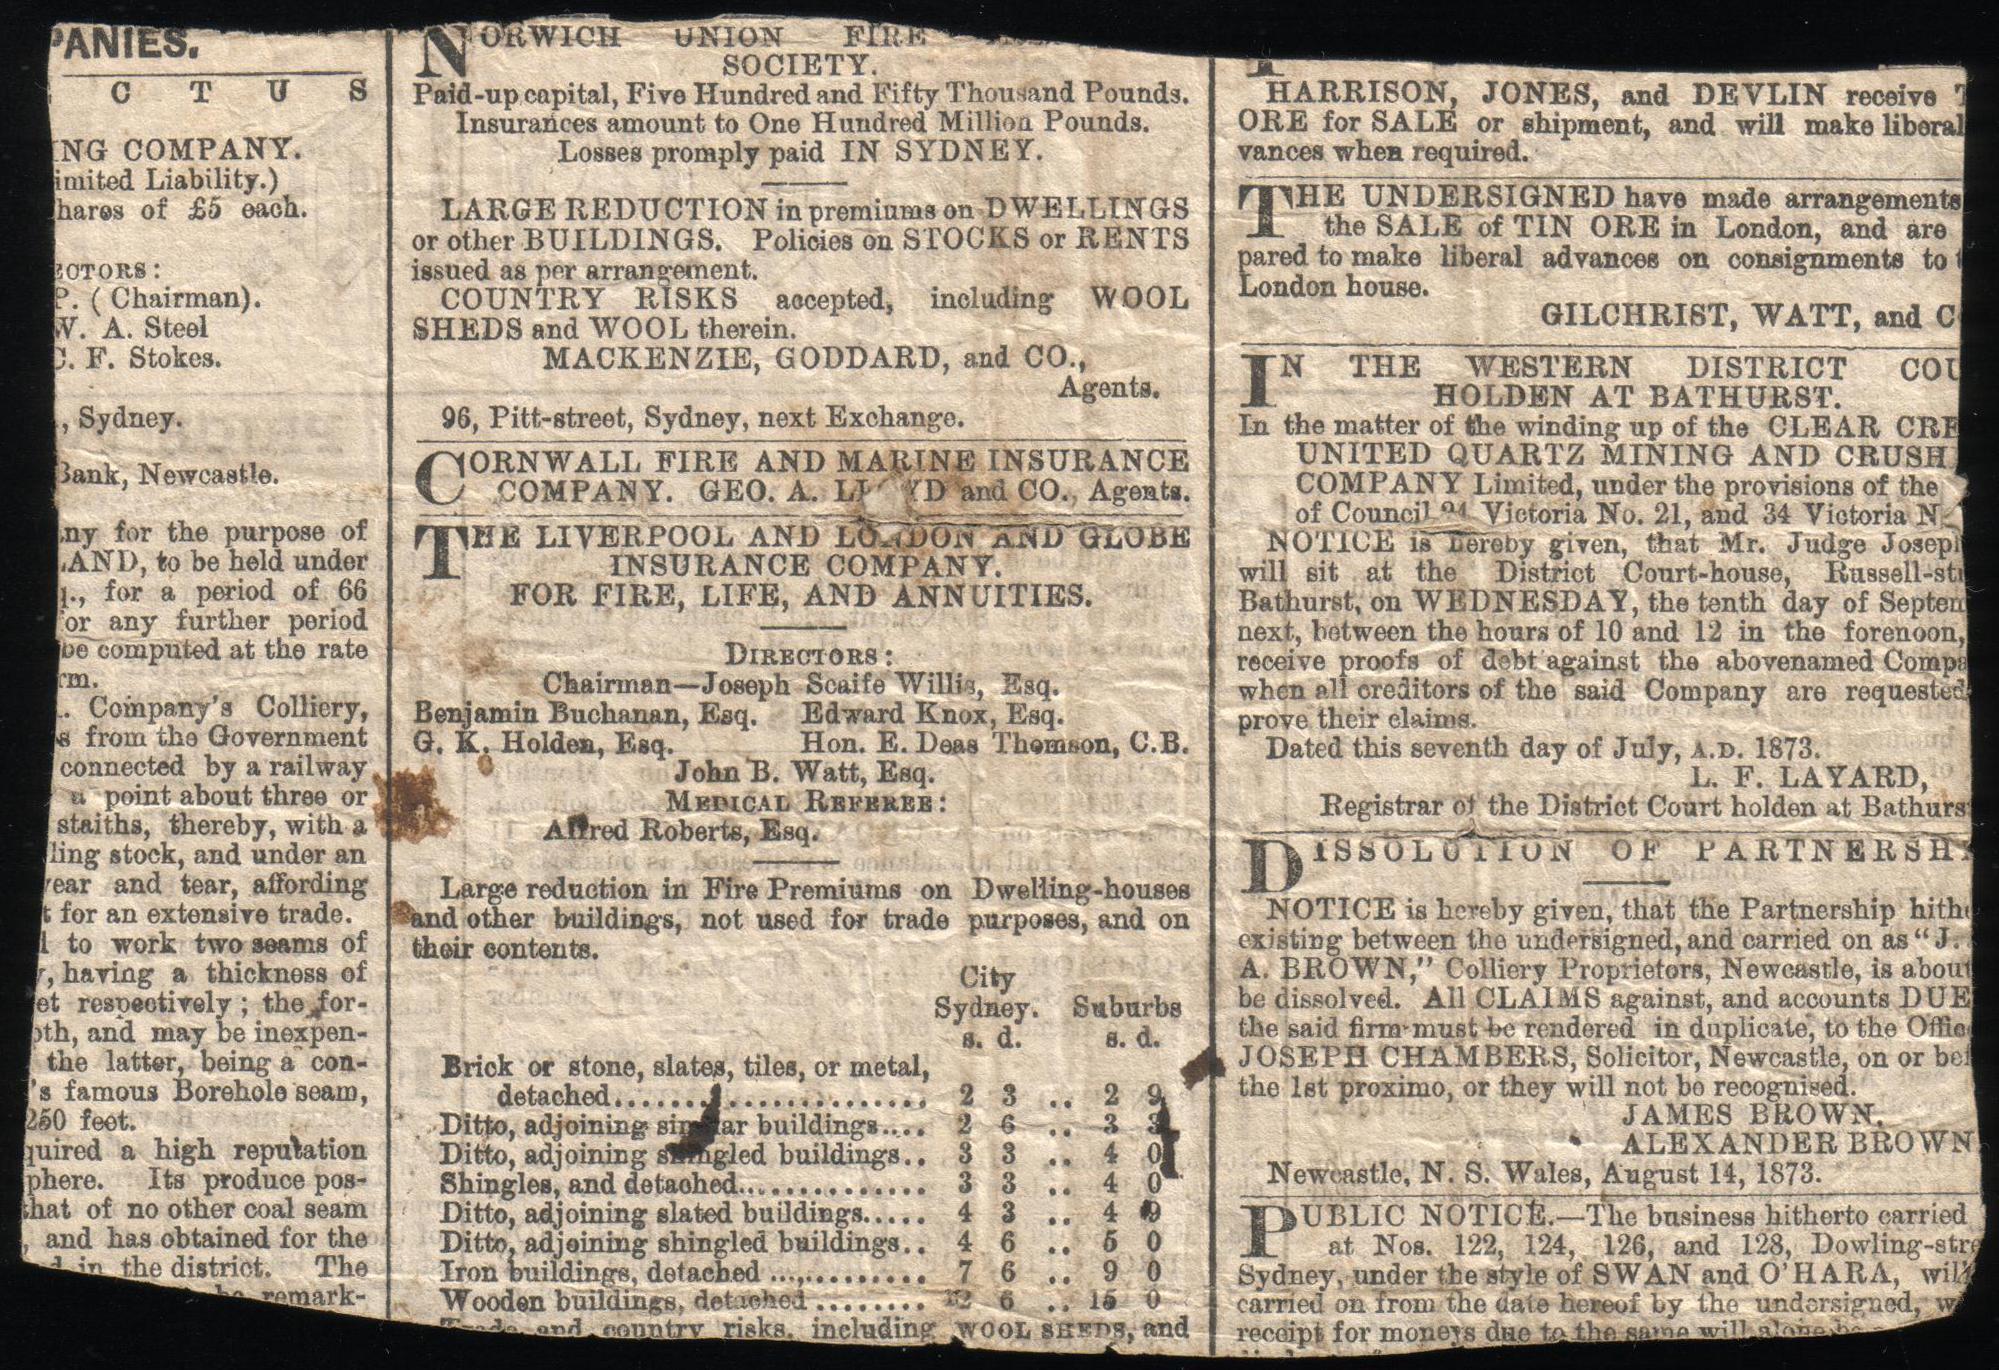 PANIES.
C T U S
ING COMPANY.
imited Liability.)
hares of £5 each.
ECTORS:
P. (Chairman).
W. A. Steel
C. F. Stokes.
., Sydney.
Bank, Newcastle.
ny for the purpose of
AND, to be held under
q., for a period of 66
or any further period
be computed at the rate
rm.
. Company's Colliery,
s from the Government
connected by a railway
a point about three or
staiths, thereby, with a
ling stock, and under an
ear and tear, affording
t for an extensive trade.
l to work two seams of
y, having a thickness of
et respectively; the for-
oth, and may be inexpen-
the latter, being a con-
's famous Borehole seam,
250 feet.
quired a high reputation
phere. Its produce pos-
that of no other coal seam
, and has obtained for the
d in the district. The
be remark-
NORWICH UNION FIRE
SOCIETY.
Paid-up capital, Five Hundred and Fifty Thousand Pounds.
Insurances amount to One Hundred Million Pounds.
Losses promply paid IN SYDNEY.
LARGE REDUCTION in premiums on DWELLINGS
or other BUILDINGS. Policies on STOCKS or RENTS
issued as per arrangement.
COUNTRY RISKS accepted, including WOOL
SHEDS and WOOL therein.
MACKENZIE, GODDARD, and CO.,
Agents.
96, Pitt-street, Sydney, next Exchange.
CORNWALL FIRE AND MARINE INSURANCE
COMPANY. GEO. A. LLOYD and CO., Agents.
THE LIVERPOOL AND LONDON AND GLOBE
INSURANCE COMPANY.
FOR FIRE, LIFE, AND ANNUITIES.
DIRECTORS:
Chairman—Joseph Scaife Willis, Esq.
Benjamin Buchanan, Esq. Edward Knox, Esq.
G. K. Holden, Esq. Hon. E. Deas Thomson, C.B.
John B. Watt, Esq.
MEDICAL REFEREE:
Alfred Roberts, Esq.
Large reduction in Fire Premiums on Dwelling-houses
and other buildings, not used for trade purposes, and on
their contents.
City
Sydney. Suburbs
s. d. s. d.
Brick or stone, slates, tiles, or metal,
detached.......................... 2 3 .. 2 9
Ditto, adjoining similar buildings.... 2 6 .. 3 3
Ditto, adjoining shingled buildings.. 3 3 .. 4 0
Shingles, and detached.............. 3 3 .. 4 0
Ditto, adjoining slated buildings..... 4 3 .. 4 9
Ditto, adjoining shingled buildings.. 4 6 .. 5 0
Iron buildings, detached ............. 7 6 .. 9 0
Wooden buildings, detached ........ 12 6 .. 15 0
Trade and country risks, including WOOL SHEDS, and
HARRISON, JONES, and DEVLIN receive T
ORE for SALE or shipment, and will make liberal
vances when required.
THE UNDERSIGNED have made arrangements
the SALE of TIN ORE in London, and are
pared to make liberal advances on consignments to t
London house.
GILCHRIST, WATT, and C
IN THE WESTERN DISTRICT COU
HOLDEN AT BATHURST.
In the matter of the winding up of the CLEAR CRE
UNITED QUARTZ MINING AND CRUSH
COMPANY Limited, under the provisions of the
of Council 24 Victoria No. 21, and 34 Victoria N
NOTICE is hereby given, that Mr. Judge Joseph
will sit at the District Court-house, Russell-str
Bathurst, on WEDNESDAY, the tenth day of Septem
next, between the hours of 10 and 12 in the forenoon,
receive proofs of debt against the abovenamed Compa
when all creditors of the said Company are requested
prove their claims.
Dated this seventh day of July, A.D. 1873.
L. F. LAYARD,
Registrar of the District Court holden at Bathurs
DISSOLUTION OF PARTNERSH
NOTICE is hereby given, that the Partnership hithe
existing between the undersigned, and carried on as "J.
A. BROWN," Colliery Proprietors, Newcastle, is about
be dissolved. All CLAIMS against, and accounts DUE
the said firm must be rendered in duplicate, to the Offic
JOSEPH CHAMBERS, Solicitor, Newcastle, on or bef
the 1st proximo, or they will not be recognised.
JAMES BROWN.
ALEXANDER BROWN
Newcastle, N. S. Wales, August 14, 1873.
PUBLIC NOTICE.—The business hitherto carried
at Nos. 122, 124, 126, and 128, Dowling-stre
Sydney, under the style of SWAN and O'HARA, will
carried on from the date hereof by the undersigned, w
receipt for moneys due to the same will alone be